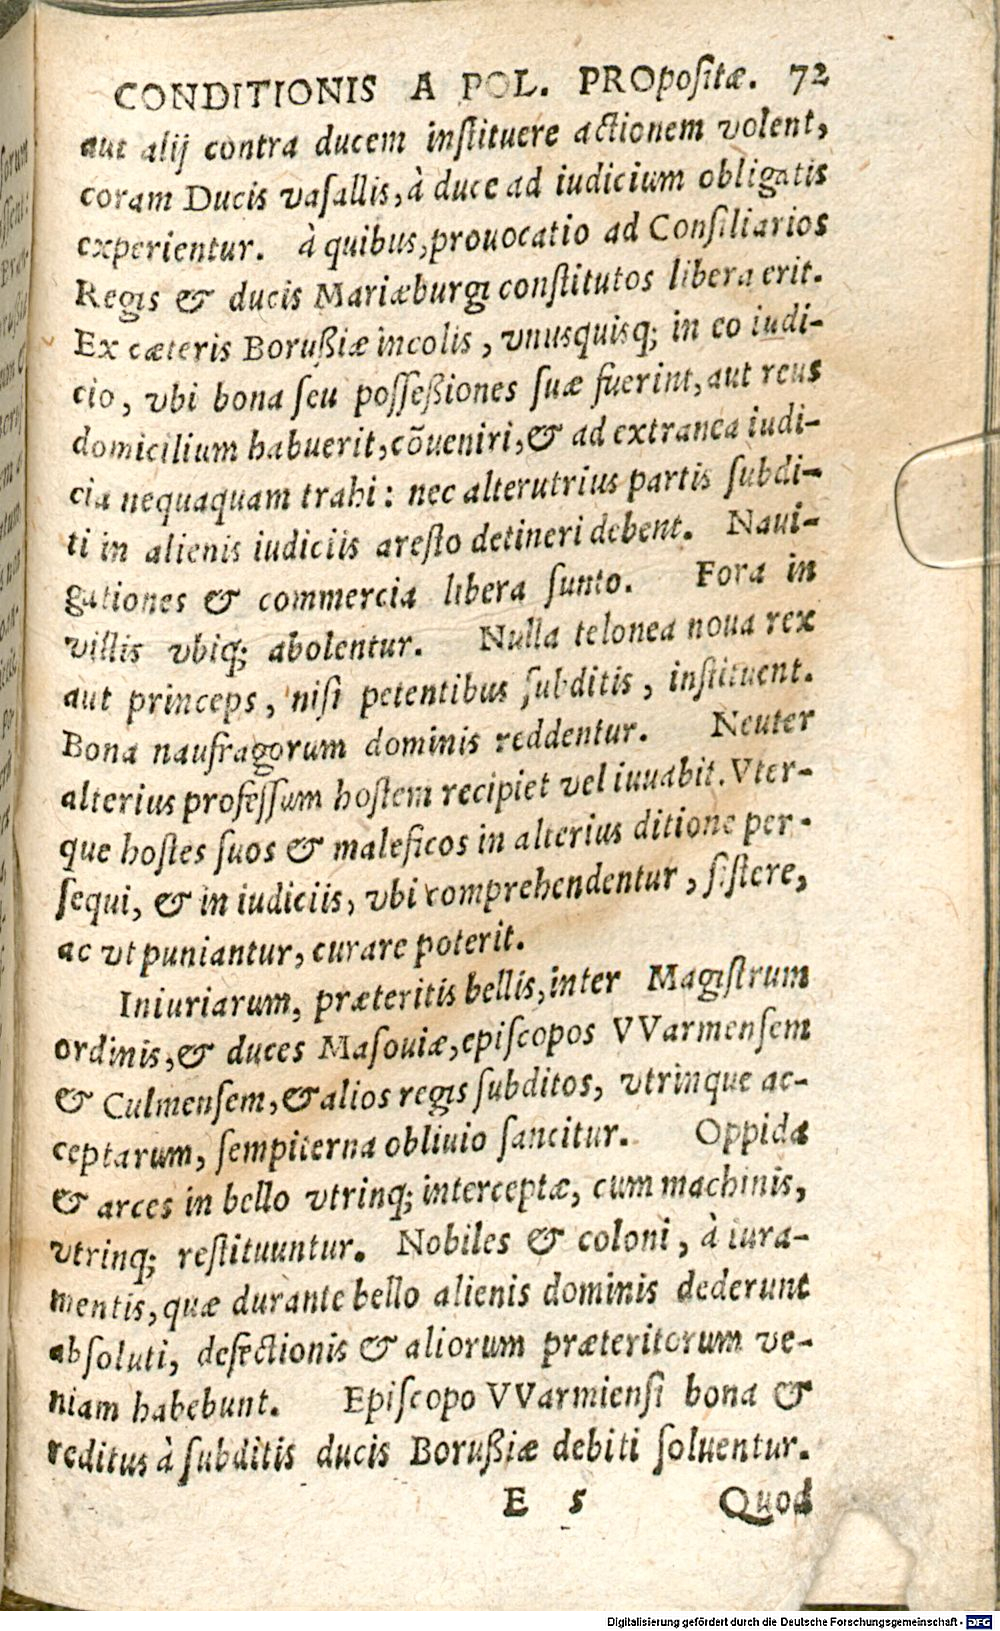 CONDITIONIS A POL. PROpositæ. 72
aut alij contra ducem inſtituere actionem volent,
coram Ducis vaſallis, à duce ad iudicium obligatis
experientur. à quibus, prouocatio ad Conſiliarios
Regis & ducis Mariæburgi conſtitutos libera erit.
Ex cæteris Borußiæ incolis, vnusquisq; in eo iudi-
cio, vbi bona ſeu poſſeßiones ſuæ fuerint, aut reus
domicilium habuerit, cõueniri, & ad extranea iudi-
cia nequaquam trahi: nec alterutrius partis ſubdi-
ti in alienis iudiciis areſto detineri debent. Naui-
gationes & commercia libera ſunto. Fora in
villis vbiq; abolentur. Nulla telonea noua rex
aut princeps, niſi petentibus ſubditis, inſtituent.
Bona naufragorum dominis reddentur. Neuter
alterius profeſſum hoſtem recipiet vel iuuabit. Vter-
que hoſtes ſuos & maleficos in alterius ditione per-
ſequi, & in iudiciis, vbi comprehendentur, ſiſtere,
ac vt puniantur, curare poterit.
Iniuriarum, præteritis bellis, inter Magiſtrum
ordinis, & duces Maſouiæ, epiſcopos VVarmenſem
& Culmenſem, & alios regis ſubditos, vtrinque ac-
ceptarum, ſempiterna obliuio ſancitur. Oppida
& arces in bello vtrinq; interceptæ, cum machinis,
vtrinq; reſtituuntur. Nobiles & coloni, à iura-
mentis, quæ durante bello alienis dominis dederunt
abſoluti, defectionis & aliorum præteritorum ve-
niam habebunt. Epiſcopo VVarmienſi bona &
reditus à ſubditis ducis Borußiæ debiti ſoluentur.
E 5 Quod
Digitalisierung gefördert durch die Deutsche Forschungsgemeinschaft - DFG